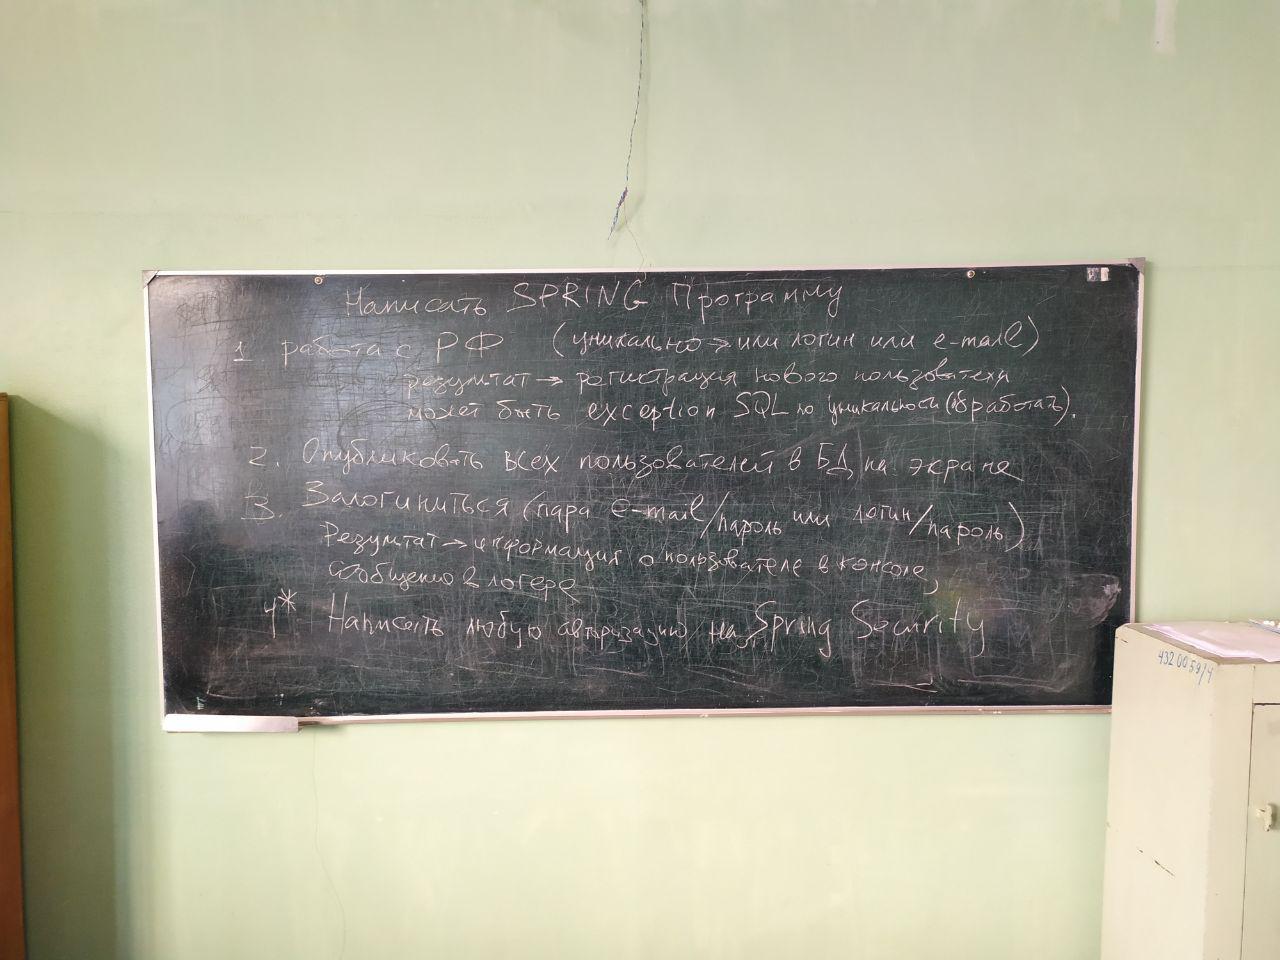 Написать SPRING Программу
1 работа с РФ (уникально → или логин или e-mail)
результат → регистрация нового пользователя
может быть exception SQL по уникальности (обработать).
2. Опубликовать всех пользователей в БД на экране
3. Залогиниться (пара e-mail/пароль или логин/пароль)
Результат → информация о пользователе в консоле,
сообщение в логере
4* Написать любую авторизацию на Spring Security
432 00 59/4